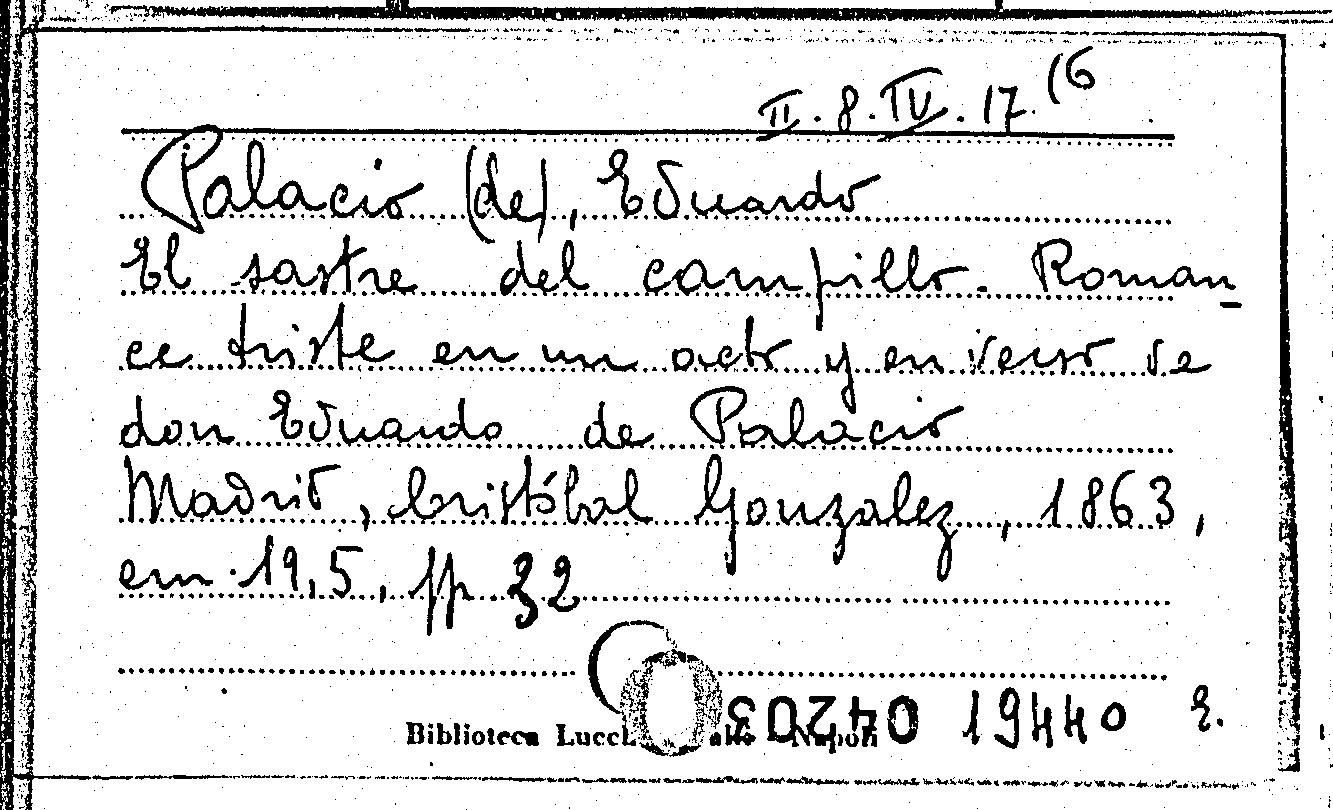 II. 8. IV. 17 (6
Palacio (de), Eduardo
El sastre del campillo. Roman-
ce triste en un acto y en verso de
don Eduardo de Palacio
Madrid, Cristóbal Gonzalez, 1863,
cm. 19,5, pp 32
Biblioteca Napoli 04203 19440 E.